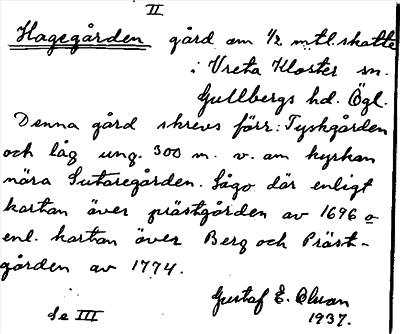 II
Hagegården gård om 1/2 mtl. skatte
i Vreta Kloster sn.
Gullbergs hd. Ögl.
Denna gård skrevs förr: Tyskgården
och låg ung. 300 m. v. om kyrkan
nära Sutaregården. Låg där enligt
kartan över prästgården av 1696 o
enl. kartan över Berg och Präst-
gården av 1774.
Gustaf E. Olsson
Se III 1937.